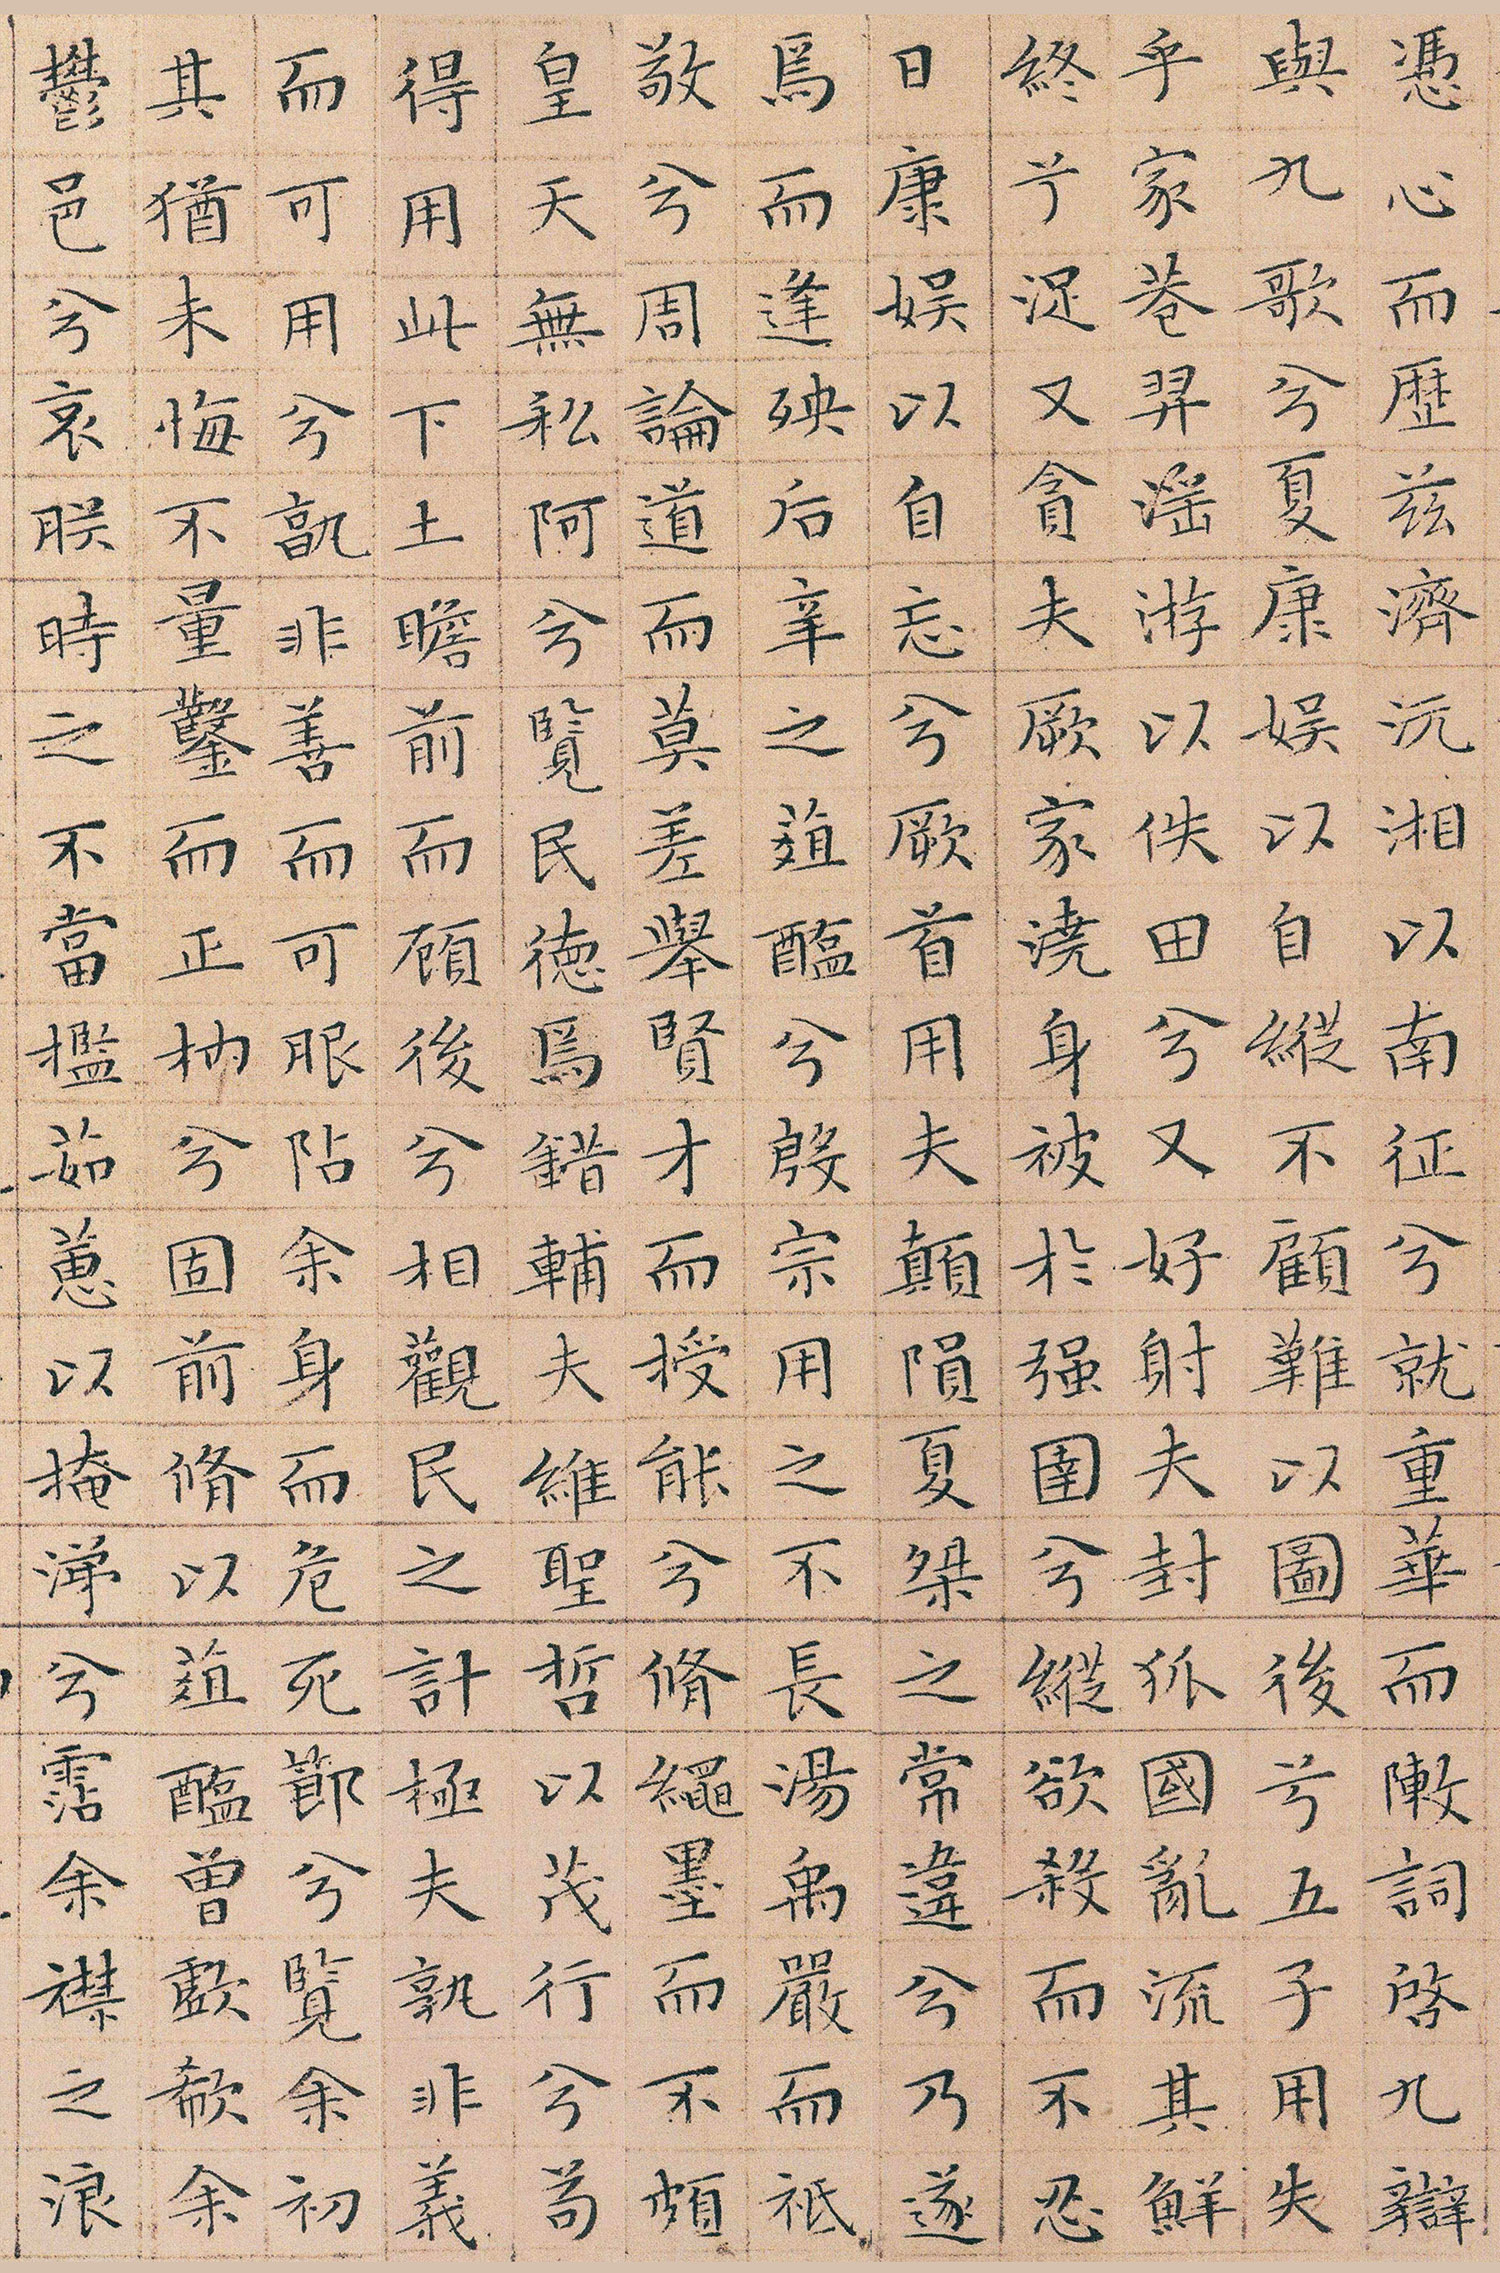 憑心而歷兹濟沅湘以南征兮就重華而敶詞啓九辯
與九歌兮夏康娛以自縱不顧難以圖後兮五子用失
乎家巷羿淫游以佚田兮又好射夫封狐國亂流其鮮
終兮浞又貪夫厥家澆身被於强圉兮縱欲殺而不忍
日康娛以自忘兮厥首用夫顛隕夏桀之常違兮乃遂
焉而逢殃后辛之葅醢兮殷宗用之不長湯禹嚴而祗
敬兮周論道而莫差舉賢才而授能兮脩繩墨而不頗
皇天無私阿兮覽民德焉錯輔夫維聖哲以茂行兮苟
得用此下土瞻前而顧後兮相觀民之計極夫孰非義
而可用兮孰非善而可服阽余身而危死節兮覽余初
其猶未悔不量鑿而正枘兮固前脩以葅醢曾歔欷余
鬱邑兮哀朕時之不當擥茹蕙以掩涕兮霑余襟之浪